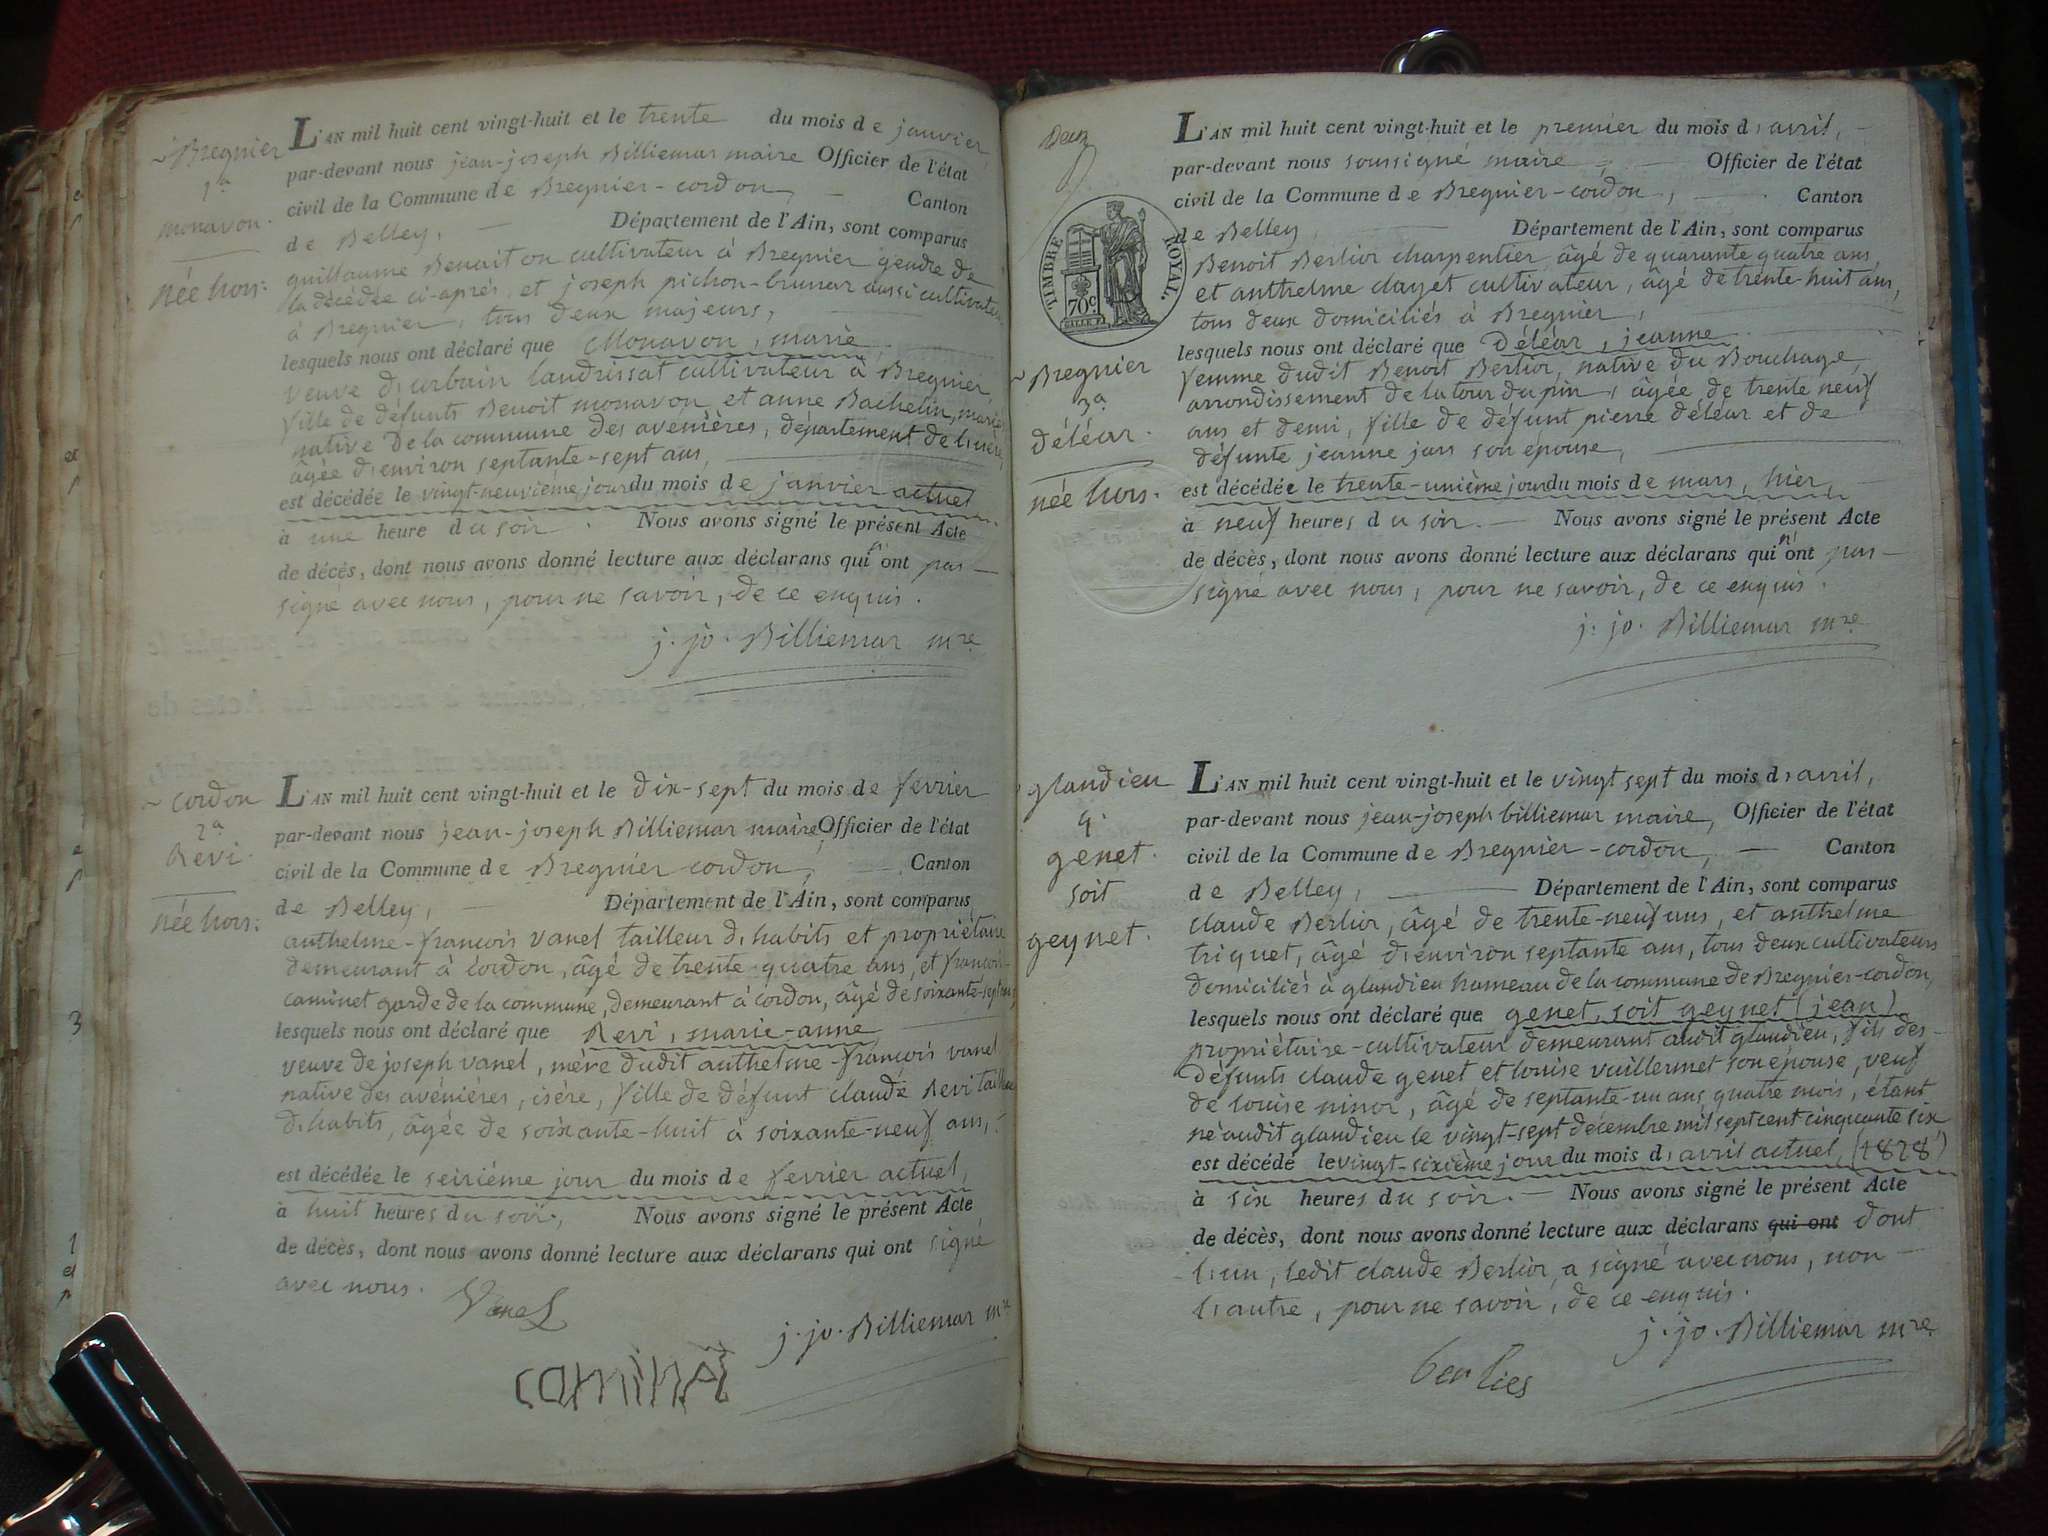 ~ Bregnier
1ª
monavon.
née hors.
L'AN mil huit cent vingt-huit et le trente du mois de janvier
par-devant nous jean-joseph Billiemar maire Officier de l'état
civil de la Commune de Bregnier-cordon, Canton
de Belley, Département de l'Ain, sont comparus
guillaume Benait on cultivateur à Bregnier gendre de
la décédée ci-après, et joseph pichon-brunar aussi cultivateur
à Bregnier, tous deux majeurs,
lesquels nous ont déclaré que Monavon, marie
veuve d'urbain landrissat cultivateur à Bregnier,
fille de défunts Benoit monavon et anne Bachelin, mariés
native de la commune des avenières, département de l'isère,
âgée d'environ septante-sept ans,
est décédée le vingt-neuvième jour du mois de janvier actuel
à une heure du soir. Nous avons signé le présent Acte
de décès, dont nous avons donné lecture aux déclarans qui n'ont pas
signé avec nous, pour ne savoir, de ce enquis.
j. jo. Billiemar mre
~ cordon
2ª
Revi.
née hors.
L'AN mil huit cent vingt-huit et le dix-sept du mois de fevrier
par-devant nous jean-joseph Billiemar maire, Officier de l'état
civil de la Commune de Bregnier cordon, Canton
de Belley, Département de l'Ain, sont comparus
anthelme-françois vanel tailleur d'habits et propriétaire
demeurant à Cordon, âgé de trente-quatre ans, et françois
caminet garde de la commune, demeurant à cordon, âgé de soixante-sept ans,
lesquels nous ont déclaré que Revi, marie-anne
veuve de joseph vanel, mère dudit anthelme-françois vanel
native des avénières, isère, fille de défunt claude Revi tailleur
d'habits, âgée de soixante-huit à soixante-neuf ans,
est décédée le seizième jour du mois de fevrier actuel,
à huit heures du soir, Nous avons signé le présent Acte
de décès, dont nous avons donné lecture aux déclarans qui ont signé
avec nous.
Vanel
j. jo. Billiemar mre
caminat
Deux
TIMBRE ROYAL.
70c
~ Bregnier
3ª
déléar.
née hors.
L'AN mil huit cent vingt-huit et le premier du mois d'avril,
par-devant nous soussigné maire, Officier de l'état
civil de la Commune de Bregnier-cordon, Canton
de Belley Département de l'Ain, sont comparus
Benoit Berlior charpentier, âgé de quarante quatre ans,
et anthelme clayet cultivateur, âgé de trente-huit ans,
tous deux domiciliés à Bregnier,
lesquels nous ont déclaré que Déléar, jeanne
femme dudit Benoit Berlior, native du Bouchage,
arrondissement de la tour du pin, âgée de trente neuf
ans et demi, fille de défunt pierre déléar et de
défunte jeanne jars son épouse,
est décédée le trente-unième jour du mois de mars, hier,
à neuf heures du soir. Nous avons signé le présent Acte
de décès, dont nous avons donné lecture aux déclarans qui n'ont pas
signé avec nous, pour ne savoir, de ce enquis.
j. jo. Billiemar mre
glandieu
4.
genet.
soit
geynet.
L'AN mil huit cent vingt-huit et le vingt sept du mois d'avril,
par-devant nous jean-joseph billiemar maire, Officier de l'état
civil de la Commune de Bregnier-cordon, Canton
de Belley, Département de l'Ain, sont comparus
claude Berlior, âgé de trente-neuf ans, et anthelme
triquet, âgé d'environ septante ans, tous deux cultivateurs
domiciliés à glandieu hameau de la commune de Bregnier-cordon,
lesquels nous ont déclaré que genet, soit geynet (jean)
propriétaire-cultivateur demeurant audit glandieu, fils des
défunts claude genet et louise vuillermet son épouse, veuf
de louise ninor, âgé de septante-un ans quatre mois, étant
né audit glandieu le vingt-sept décembre mil sept cent cinquante six
est décédé le vingt-sixième jour du mois d'avril actuel, (1828)
à six heures du soir. Nous avons signé le présent Acte
de décès, dont nous avons donné lecture aux déclarans qui ont dont
l'un, ledit claude Berlior, a signé avec nous, non
l'autre, pour ne savoir, de ce enquis.
j. jo. Billiemar mre
berlies